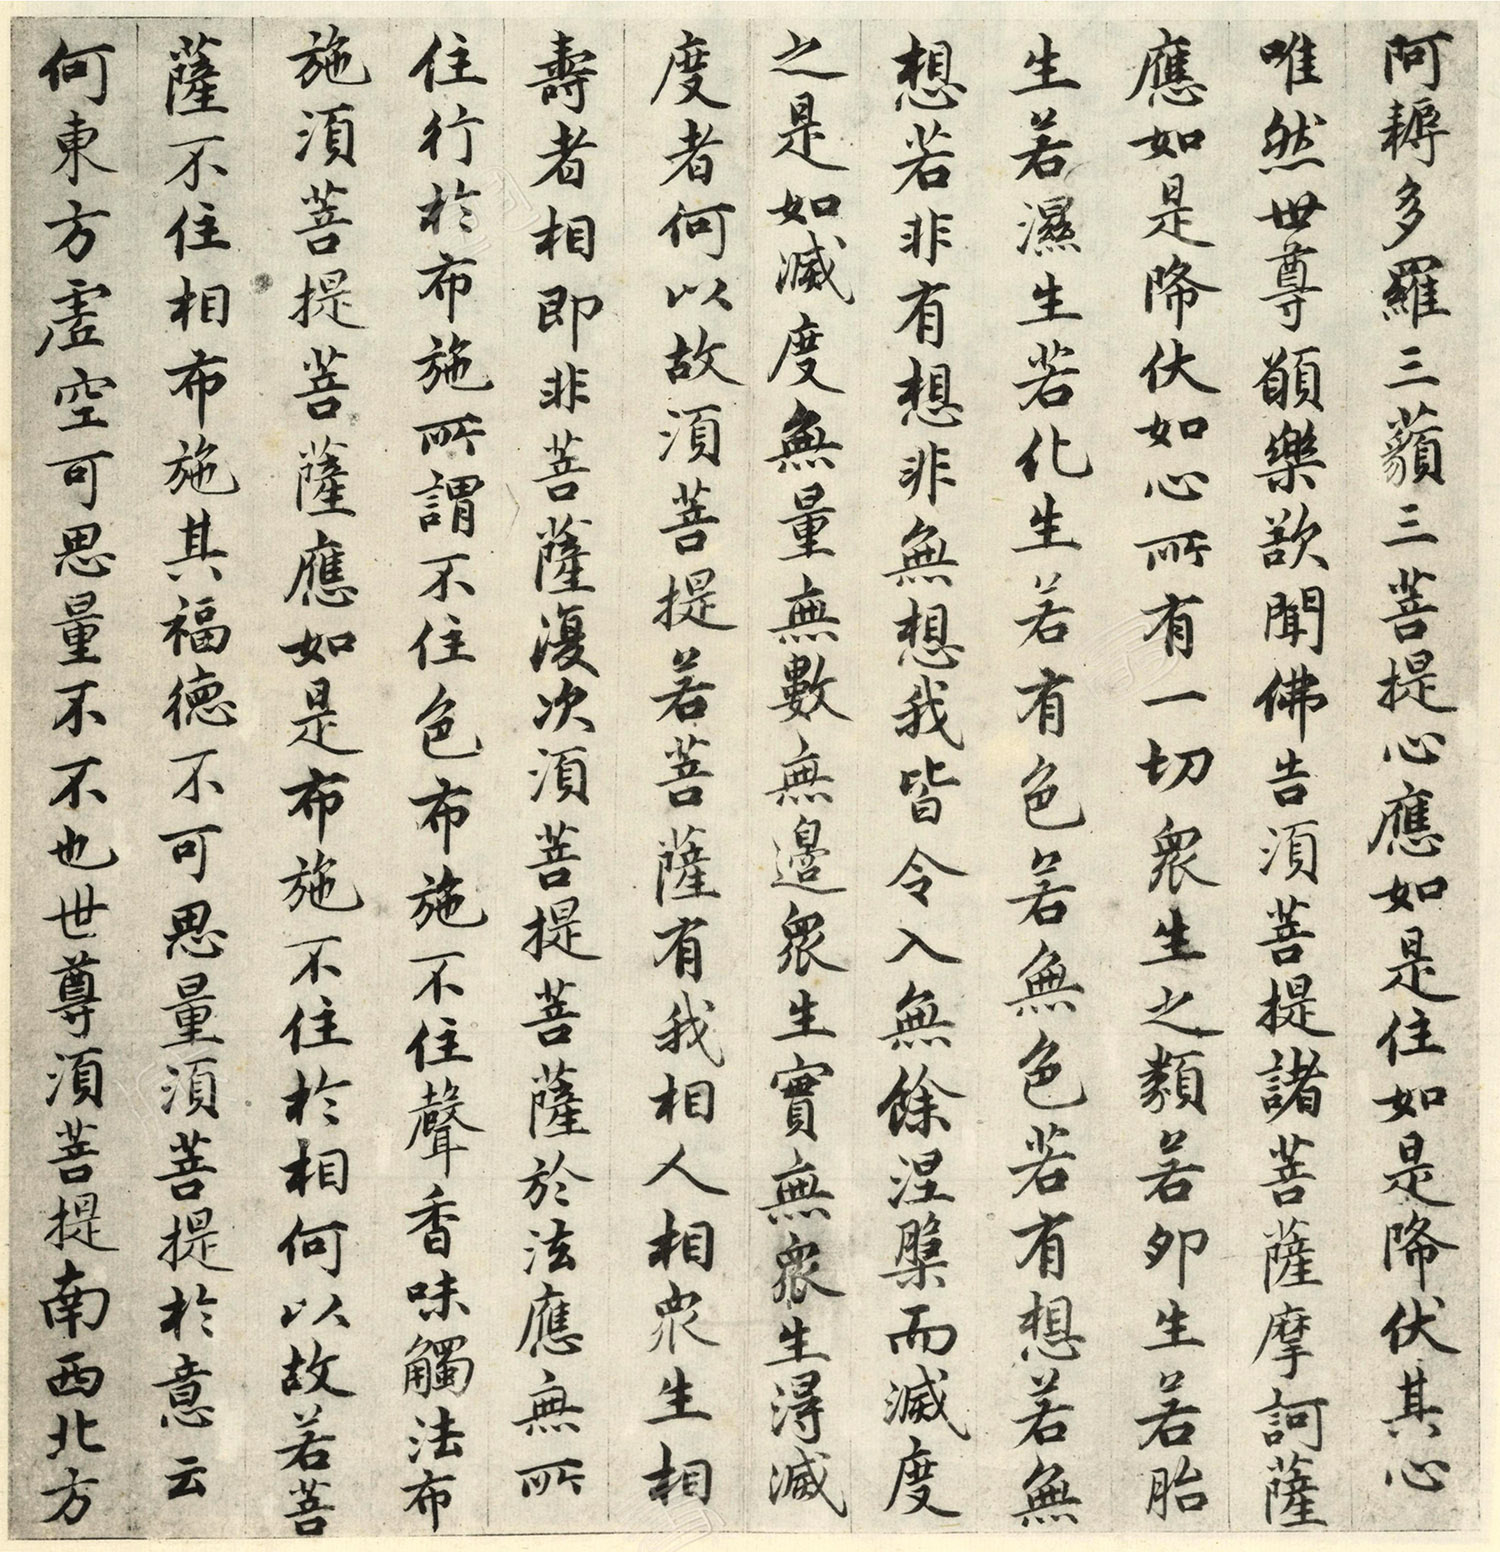 阿耨多羅三藐三菩提心應如是住如是降伏其心
唯然世尊願樂欲聞佛告須菩提諸菩薩摩訶薩
應如是降伏如心所有一切眾生之類若卵生若胎
生若濕生若化生若有色若無色若有想若無
想若非有想非無想我皆令入無餘涅槃而滅度
之是如滅度無量無數無邊眾生實無眾生得滅
度者何以故須菩提若菩薩有我相人相眾生相
壽者相即非菩薩復次須菩提菩薩於法應無所
住行於布施所謂不住色布施不住聲香味觸法布
施須菩提菩薩應如是布施不住於相何以故若菩
薩不住相布施其福德不可思量須菩提於意云
何東方虛空可思量不不也世尊須菩提南西北方